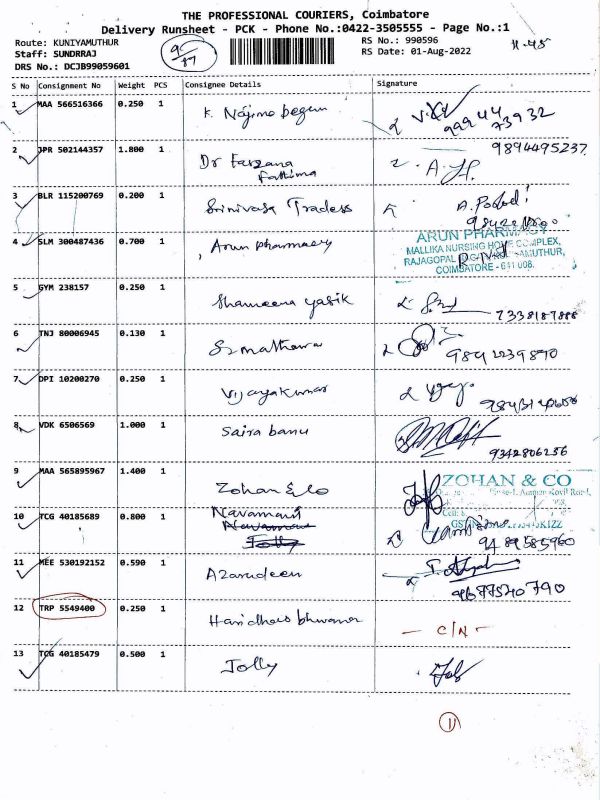 THE PROFESSIONAL COURIERS, Coimbatore
Delivery Runsheet - PCK - Phone No.:0422-3505555 - Page No.:1
Route: KUNIYAMUTHUR
RS No.: 990596
11.45
Staff: SUNDRRAJ
RS Date: 01-Aug-2022
DRS No.: DCJB99059601
S No Consignment No Weight PCS Consignee Details Signature
1 MAA 566516366 0.250 1 K. Najima begum 99944 73932
2 JPR 502144357 1.800 1 Dr Farzana Fathima 9894495237
3 BLR 115200769 0.200 1 Srinivasa Traders
4 SLM 300487436 0.700 1 Arun pharmacy
ARUN PHARMACY
MALLIKA NURSING HOME COMPLEX,
COIMBATORE - 641 008.
5 GYM 238157 0.250 1 Shameena yasik 7338187888
6 TNJ 80006945 0.130 1 9842239890
7 DPI 10200270 0.250 1 Vijayakumar
8 VDK 6506569 1.000 1 Saira banu 9342806256
9 MAA 565895967 1.400 1 Zohan & Co
ZOHAN & CO
10 TCG 40185689 0.800 1 Navamani 9489585960
11 MEE 530192152 0.590 1 Azarudeen 9677540790
12 TRP 5549400 0.250 1 - C/N -
13 TCG 40185479 0.500 1 Jolly
11